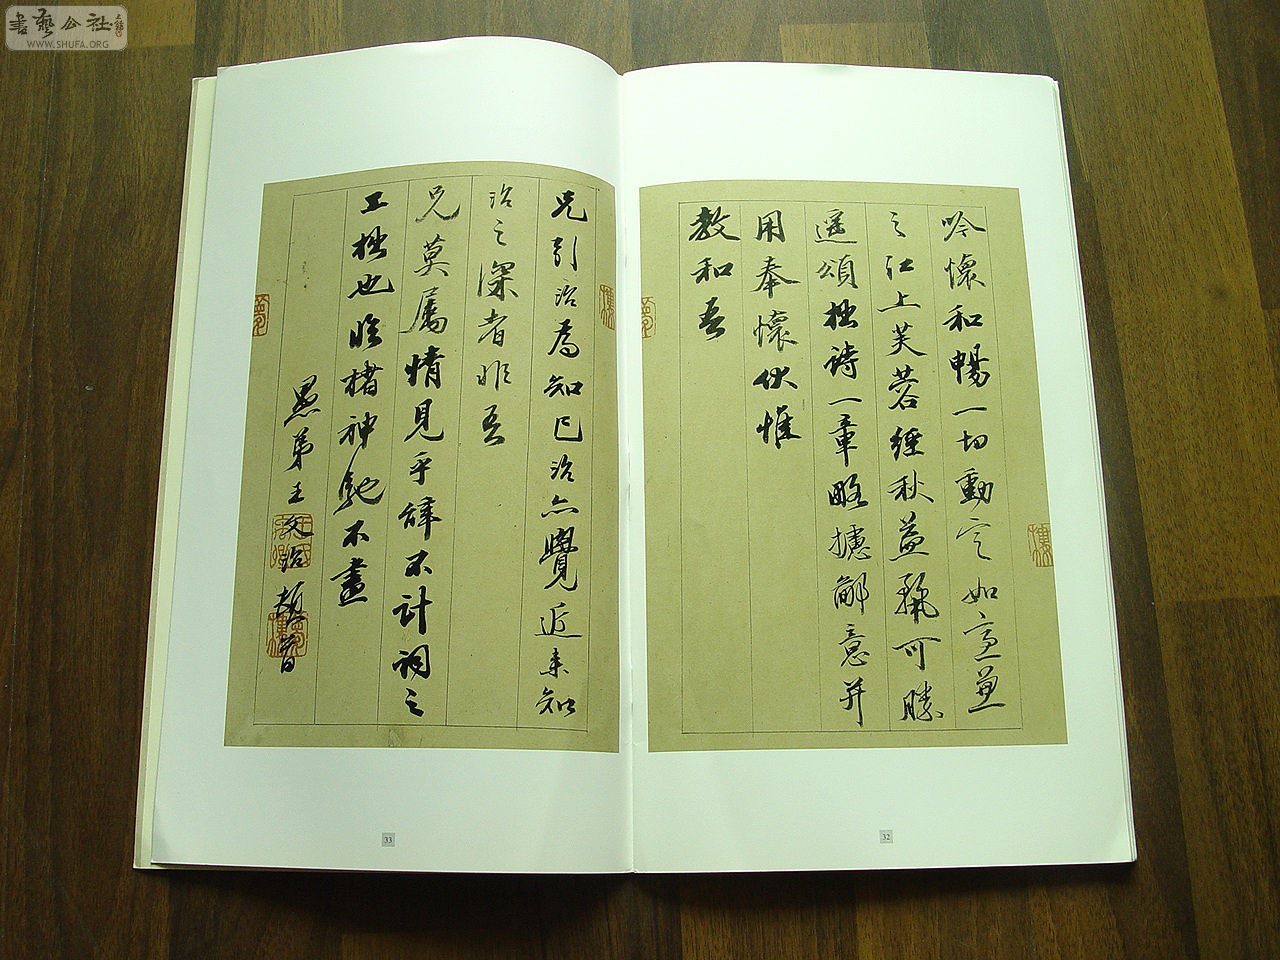 書藝公社
WWW.SHUFA.ORG
吟懷和暢一切動定如意兼
之江上芙蓉經秋益艷可勝
遥頌拙詩一章略攄鄙意并
用奉懷伏惟
教和吾
32
兄引治為知己治亦覺近來知
治之深者非吾
兄莫屬情見乎辭不計詞之
工拙也臨楮神馳不盡
愚弟王文治頓首
33